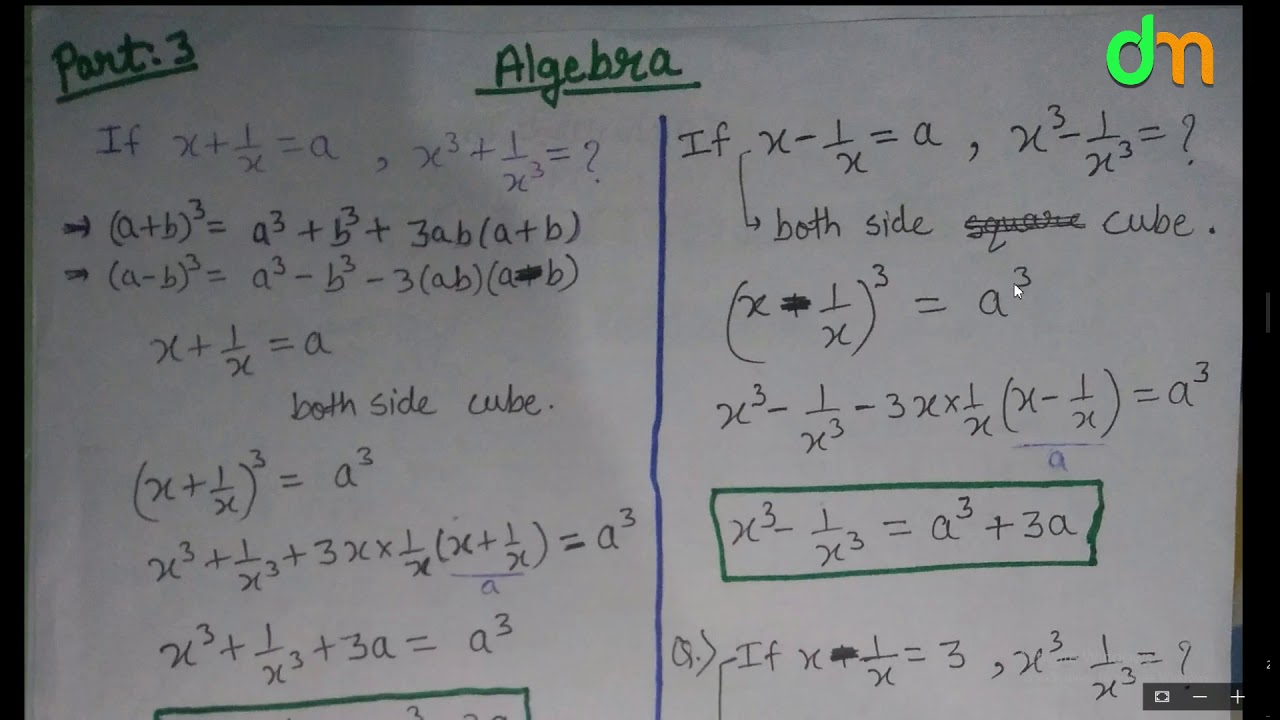 Part: 3
Algebra
dm
If x + 1/x = a , x³ + 1/x³ = ?
→ (a+b)³ = a³ + b³ + 3ab(a+b)
→ (a-b)³ = a³ - b³ - 3(ab)(a-b)
x + 1/x = a
both side cube.
(x + 1/x)³ = a³
x³ + 1/x³ + 3x × 1/x (x + 1/x) = a³
a
x³ + 1/x³ + 3a = a³
If x - 1/x = a , x³ - 1/x³ = ?
both side square cube.
(x - 1/x)³ = a³
x³ - 1/x³ - 3x × 1/x (x - 1/x) = a³
a
x³ - 1/x³ = a³ + 3a
Q.) If x - 1/x = 3 , x³ - 1/x³ = ?